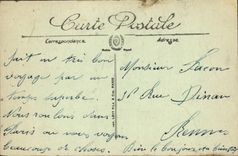 Carte Postale
Correspondance
Adresse
fait un très bon
voyage par un
temps superbe.
Nous roulons dans
Paris ou nous voyons
beaucoup de choses.
Monsieur Facon
16 Rue Dinan
Rennes